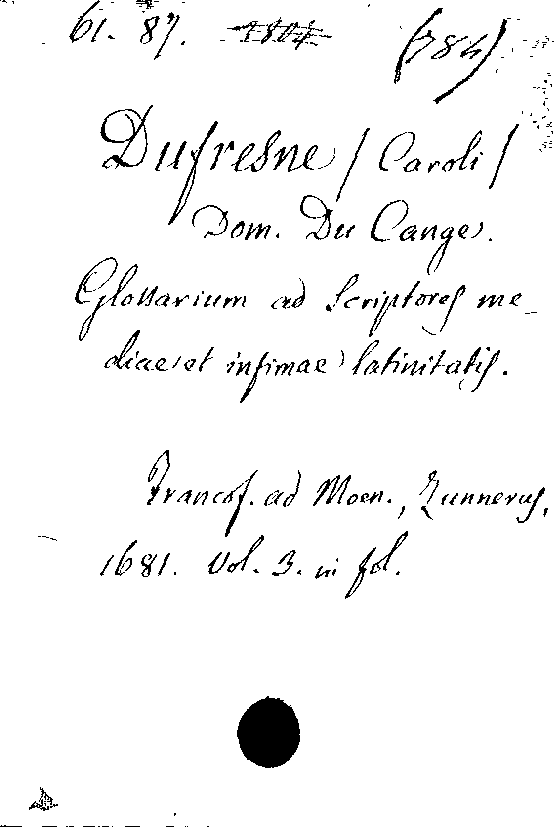 61. 87. 1804 (784)
Dufresne / Caroli /
Dom. Du Cange.
Glossarium ad Scriptores me-
diae et infimae latinitatis.
Francof. ad Moen., Zunnerus,
1681. Vol. 3. in fol.